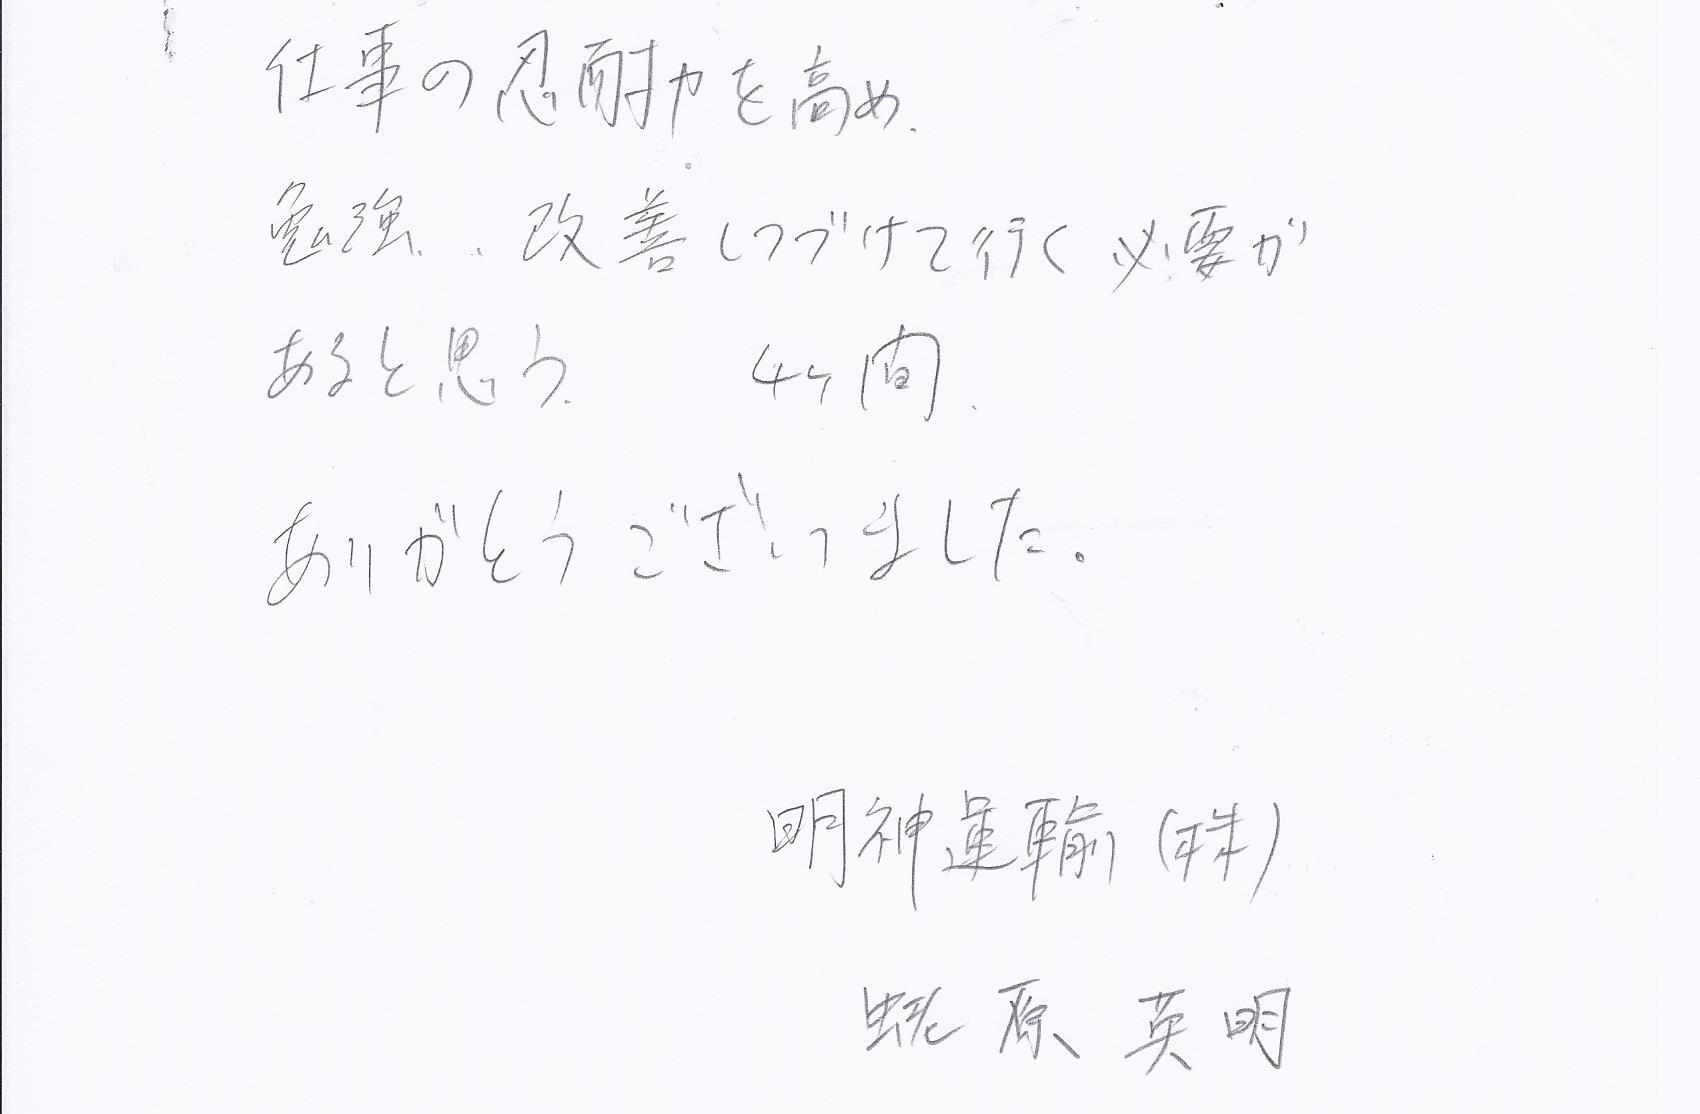 仕事の忍耐力を高め、
勉強、、改善しつづけて行く必要が
あると思う。 4ヶ間、
ありがとうございました。
明神運輸(株)
蜣原英明